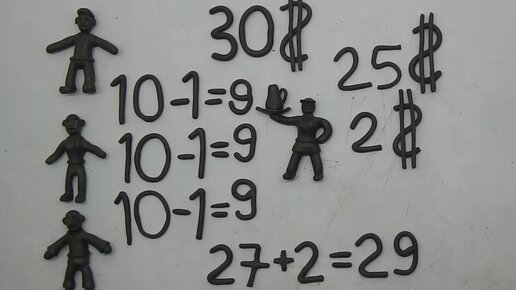 30$
25$
10-1=9
2$
10-1=9
10-1=9
27+2=29